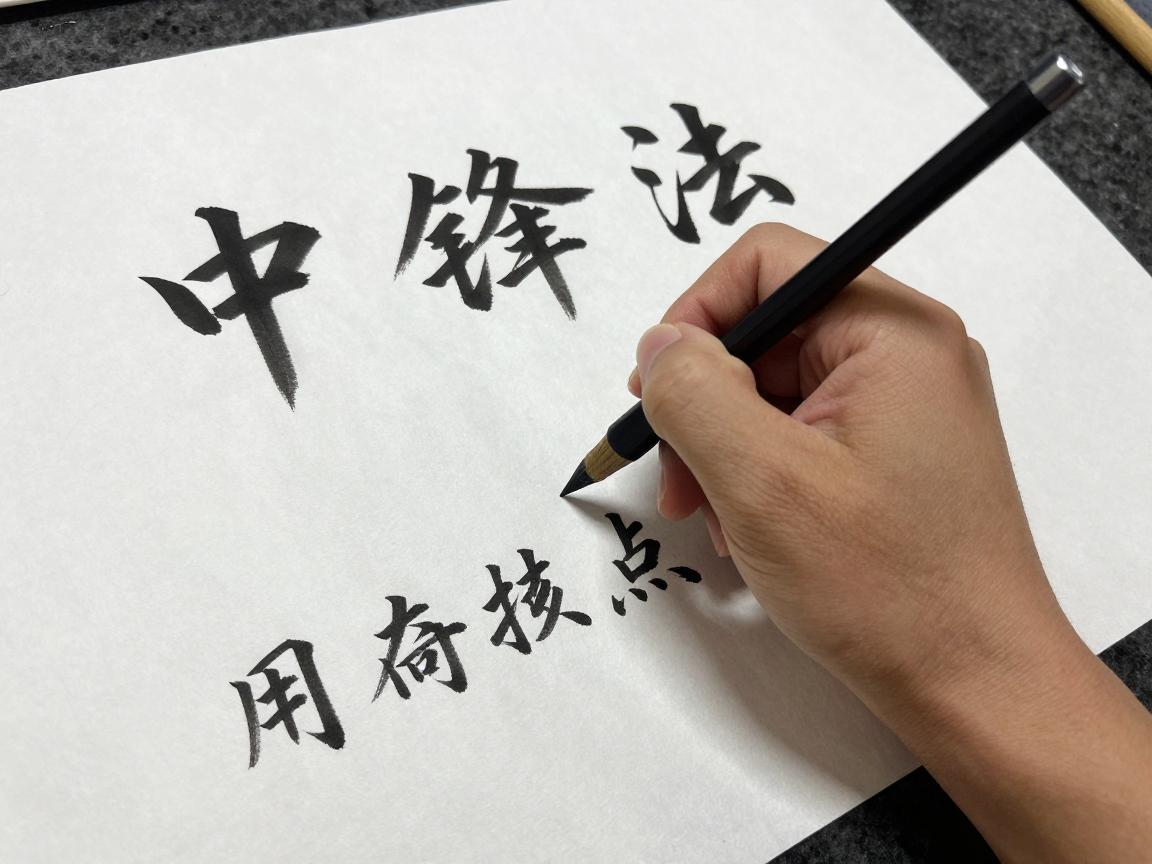 中锋法
用奇核点